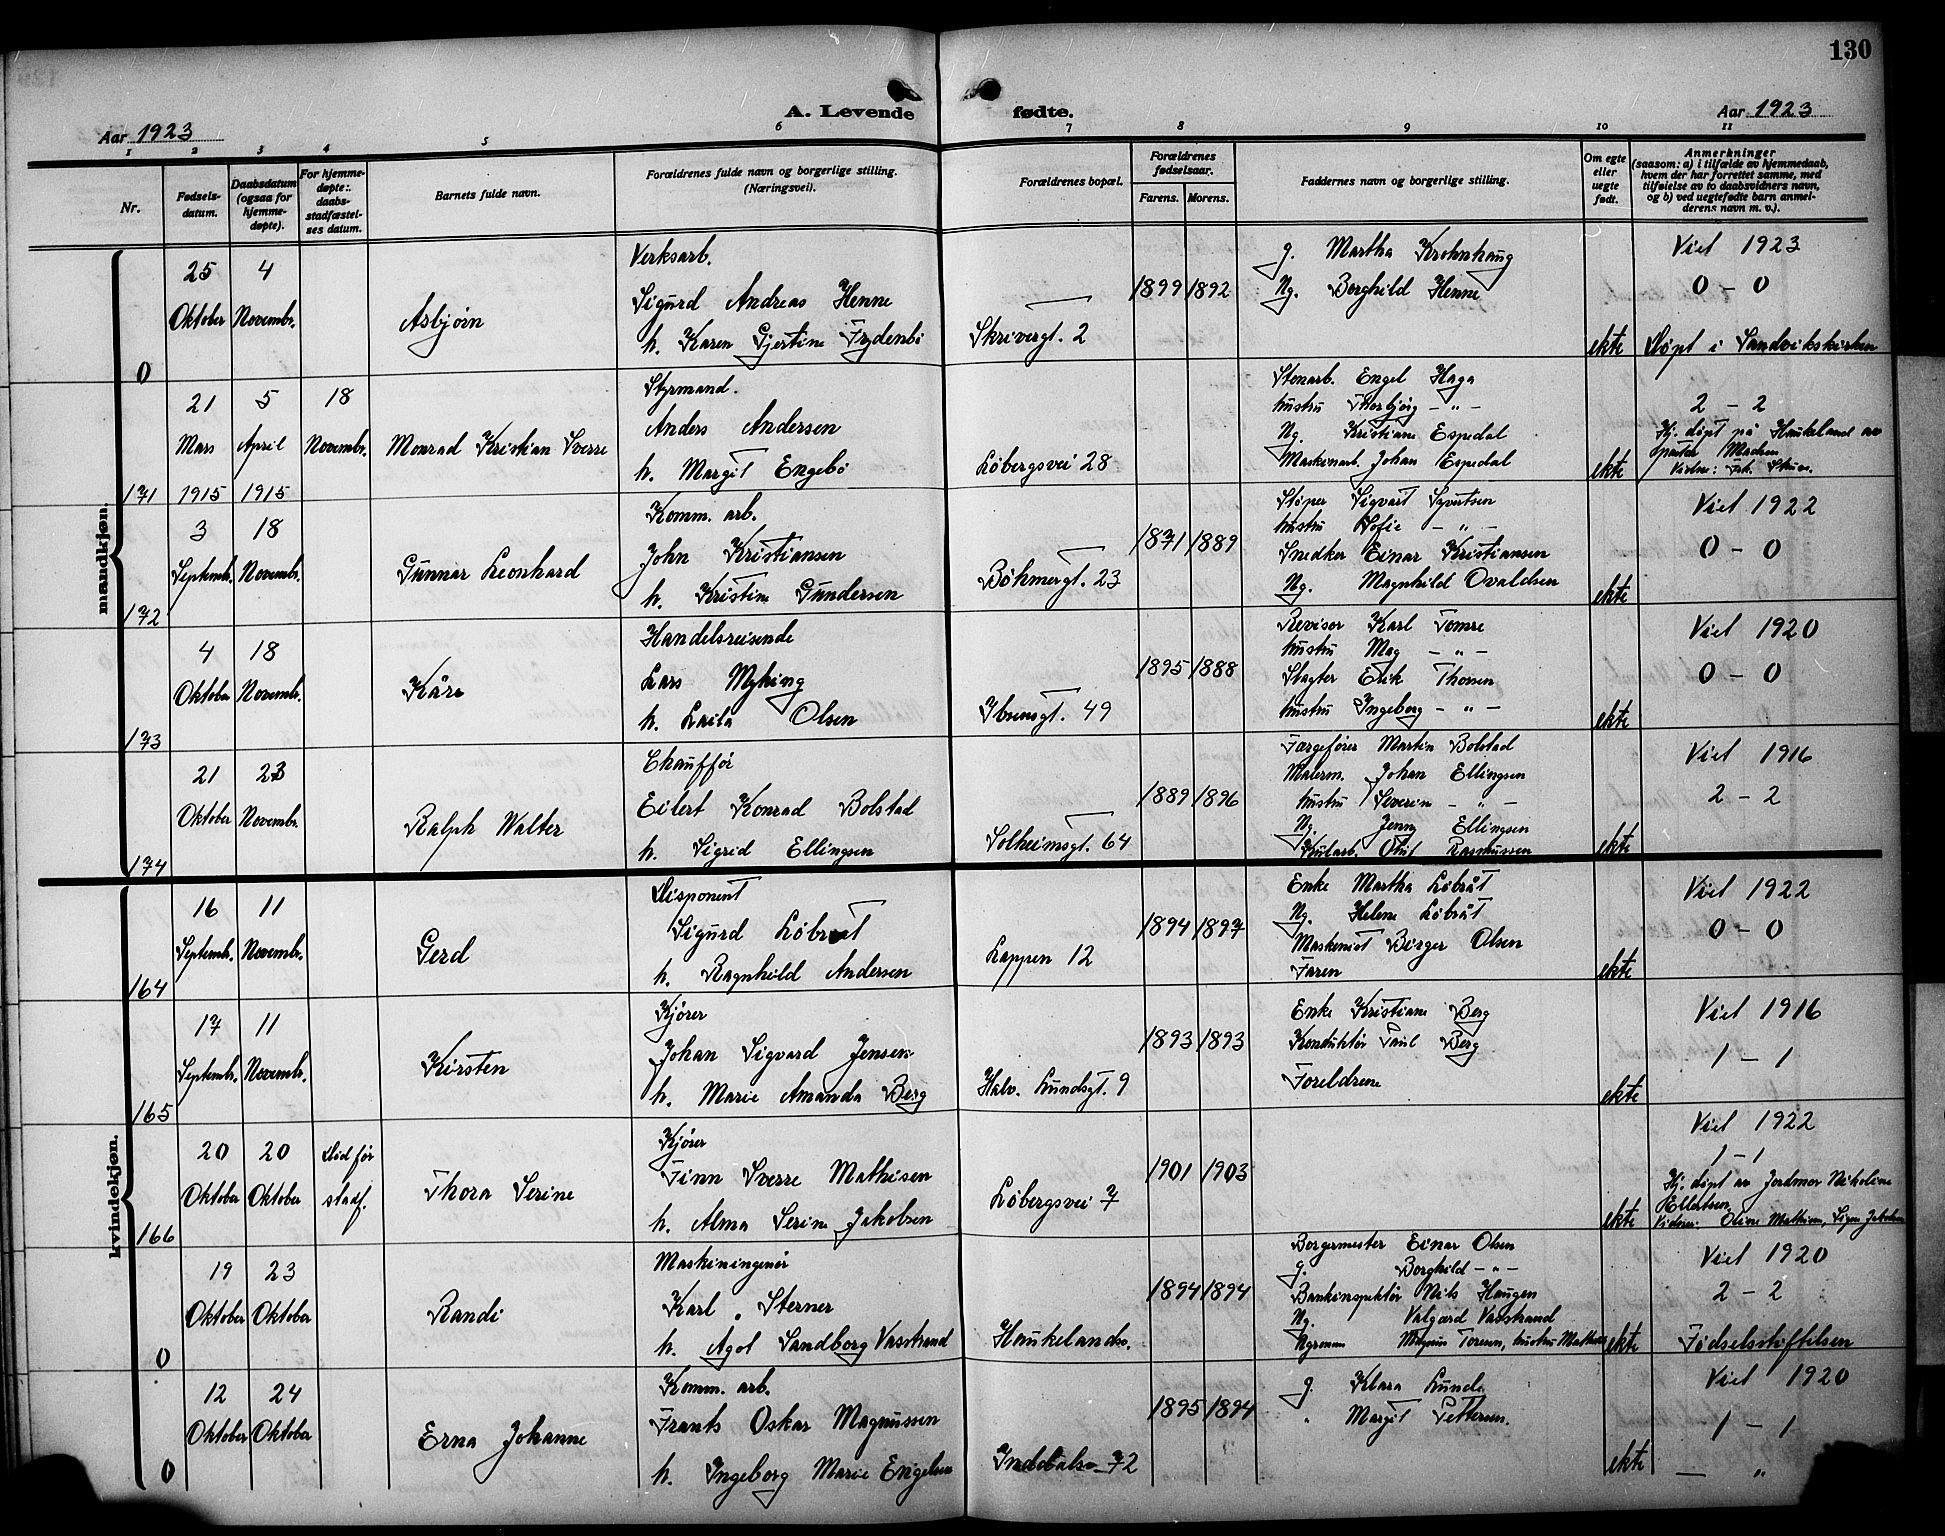 130
A. Levende fødte.
Aar 1923
Aar 1923
1 2 3 4 5 6 7 8 9 10 11
Nr.
Fødsels-datum.
Daabsdatum (ogsaa for hjemme-døpte).
For hjemme-døpte: daabs-stadfæstel-ses datum.
Barnets fulde navn.
Forældrenes fulde navn og borgerlige stilling. (Næringsvei).
Forældrenes bopæl.
Forældrenes fødselsaar.
Farens. Morens.
Faddernes navn og borgerlige stilling.
Om egte eller uegte født.
Anmerkninger (saasom: a) i tilfælde av hjemmedaab, hvem der har forrettet samme, med tilføielse av to daabsvidners navn, og b) ved uegtefødte barn anmel-derens navn m. v.).
mandkjøn.
0
25 Oktober
4 Novembr.
Asbjørn
Verksarb.
Sigurd Andreas Henne
h. Karen Gjertine Frydenbø
Skrivergt. 2
1899 1892
g. Martha Krohnhaug
Ng. Borghild Henne
ekte
Viet 1923
0 - 0
Døpt i Sandvikskirken
171
21 Mars 1915
5 April 1915
18 Novembr.
Monrad Kristian Sverre
Styrmand.
Anders Andersen
h. Margit Engebø
Løbergsvei 28
Stenarb. Engel Haga
hustru Thorbjørg - " -
Ng. Kristiane Espedal
Maskinarb. Johan Espedal
ekte
2 - 2
Hj. døpt på Haukeland av
172
3 Septembr.
18 Novembr.
Gunnar Leonhard
Komm. arb.
John Kristiansen
h. Kristine Gundersen
Bøhmergt. 23
1871 1889
Støper Sigvart Syvertsen
hustru Sofie - " -
Snedker Einar Kristiansen
Ng. Magnhild Ovaldsen
ekte
Viet 1922
0 - 0
173
4 Oktober
18 Novembr.
Kåre
Handelsreisende
Lars Myking
h. Laila Olsen
Ibsensgt. 49
1895 1888
Revisor Karl Tomre
hustru Mag - " -
Slagter Erik Thorsen
hustru Ingeborg - " -
ekte
Viet 1920
0 - 0
174
21 Oktober
23 Novembr.
Ralph Walter
Chauffør
Eilert Konrad Bolstad
h. Sigrid Ellingsen
Solheimsgt. 64
1889 1896
Færgefører Martin Bolstad
Malerm. Johan Ellingsen
hustru Severin - " -
Ng. Jenny Ellingsen
Rasmussen
ekte
Viet 1916
2 - 2
kvindekjøn.
164
16 Septembr.
11 Novembr.
Gerd
Disponent
Sigurd Løbråt
h. Ragnhild Andersen
Lappen 12
1894 1897
Enke Martha Løbråt
Ng. Helene Løbråt
Maskinist Birger Olsen
Faren
ekte
Viet 1922
0 - 0
165
17 Septembr.
11 Novembr.
Kirsten
Kjører
Johan Sigvard Jensen
h. Marie Amanda Berg
Halv. Lundsgt. 9
1893 1893
Enke Kristiane Berg
Konduktør Paul Berg
Foreldrene
ekte
Viet 1916
1 - 1
166
20 Oktober
20 Oktober
Død før stadf.
Thora Serine
Kjører
Finn Sverre Mathisen
h. Alma Serine Jakobsen
Løbergsvei 7
1901 1903
ekte
Viet 1922
1 - 1
Hj. døpt av Jordmor Nikoline
Ellertsen.
Vidner: Oline Mathisen, Signe Jakobsen
0
19 Oktober
23 Oktober
Randi
Maskiningeniør
Karl Sterner
h. Ågot Sandborg Vasstrand
Haukelandsv.
1894 1894
Borgermester Einar Olsen
g. Borghild - " -
Bankinspektør Nils Haugen
Ng. Valgard Vasstrand
ekte
Viet 1920
2 - 2
Fødselsstiftelsen
0
12 Oktober
24 Oktober
Erna Johanne
Komm. arb.
Frants Oskar Magnussen
h. Ingeborg Marie Engelsen
Inddalsv. 72
1895 1894
g. Klara Lunde
" Margit Pettersen.
ekte
Viet 1920
1 - 1
— "